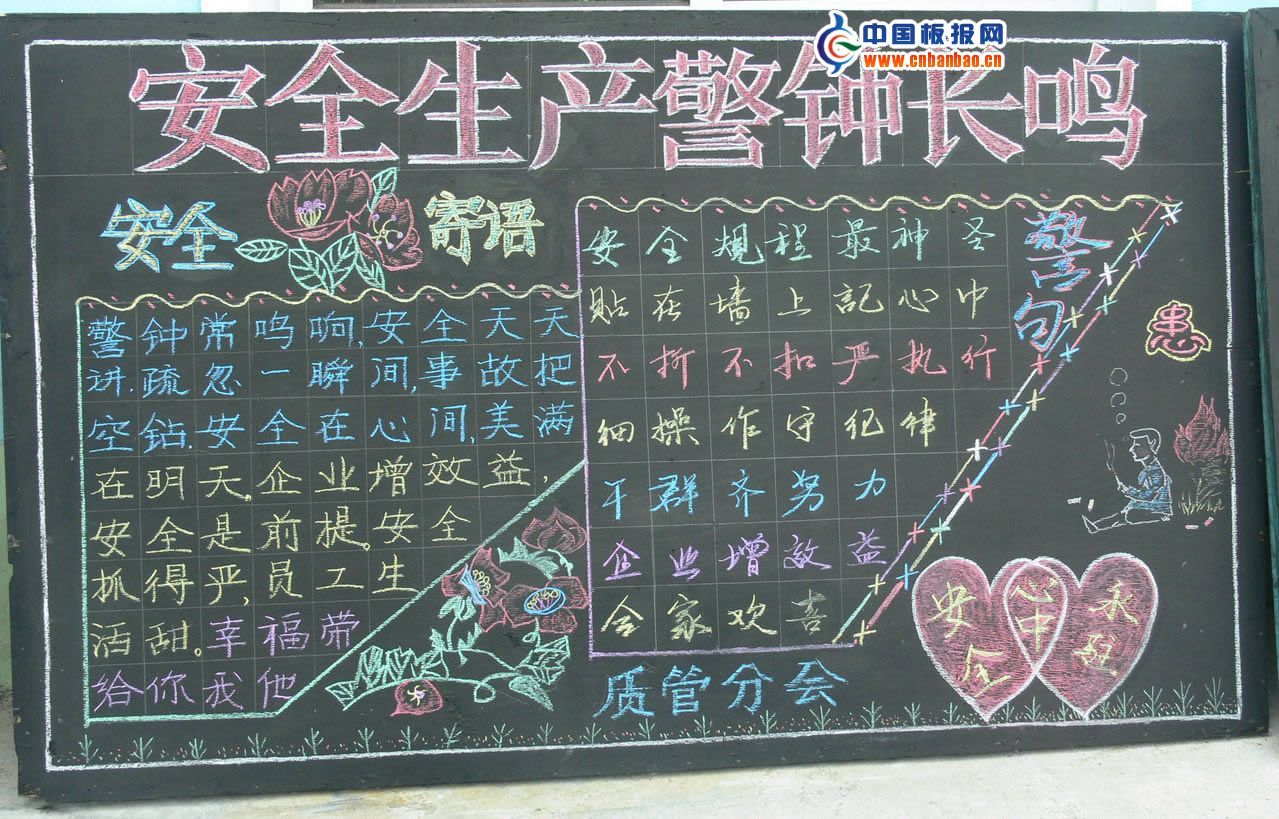 中国板报网
www.cnbanbao.cn
安全生产警钟长鸣
安全寄语
警钟常鸣响,安全天天
讲.疏忽一瞬间,事故把
空钻.安全在心间,美满
在明天。企业增效益,
安全是前提。安全
抓得严,员工生
活甜。幸福带
给你我他
警句
安全规程最神圣
贴在墙上記心中
不折不扣严执行
细操作守纪律
干群齐努力
企业增效益
合家欢喜
质管分会
愚
安全
心中
永